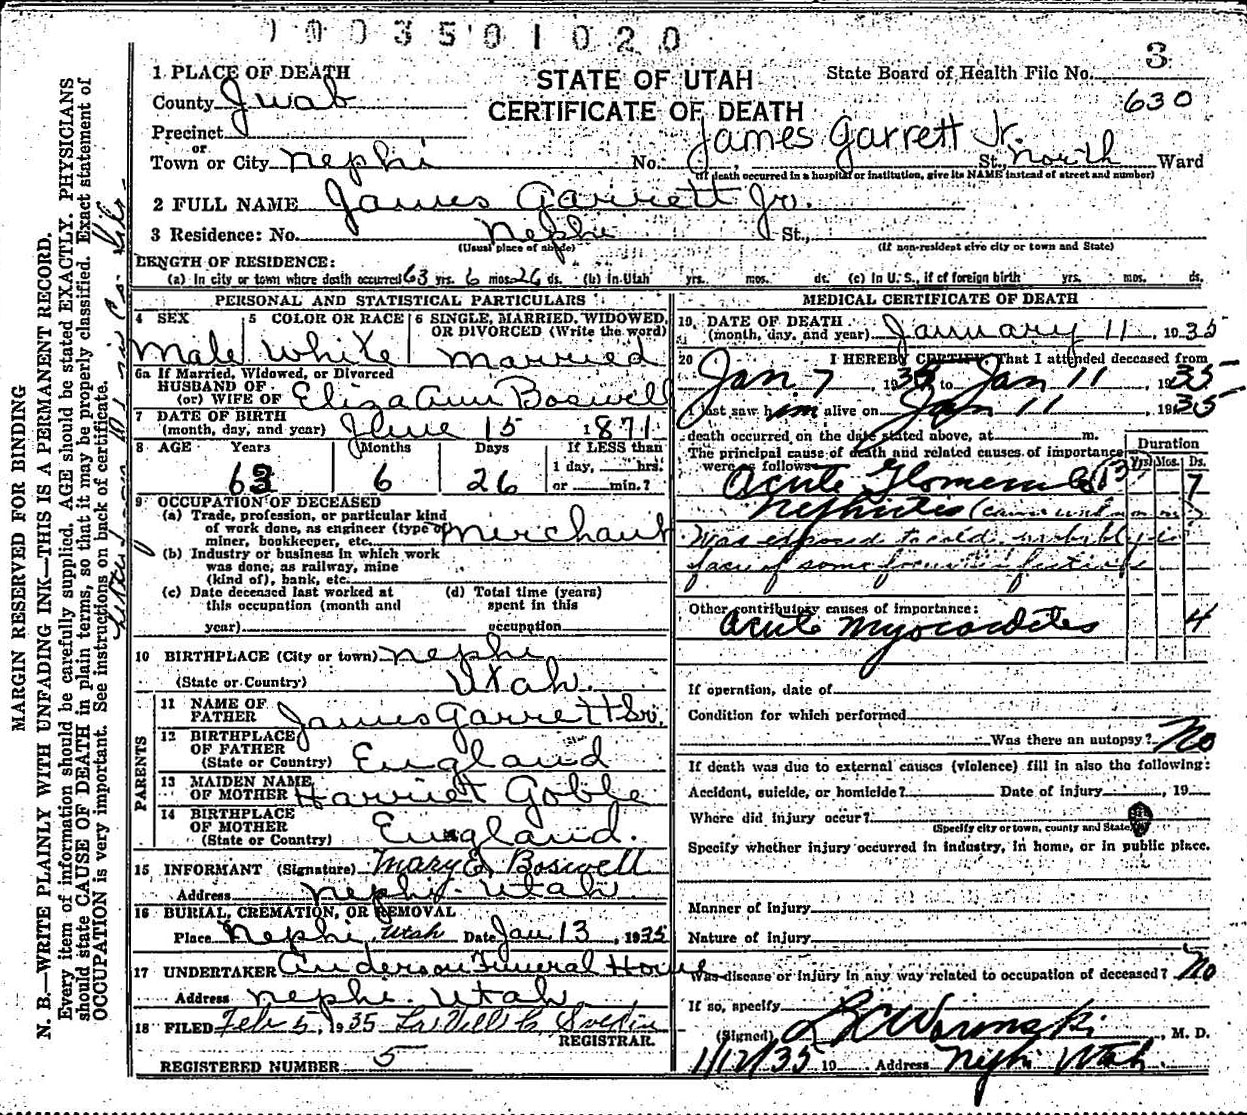 1003501020
3
1 PLACE OF DEATH
STATE OF UTAH
State Board of Health File No.
County Juab
CERTIFICATE OF DEATH
630
Precinct
James Garrett Jr.
or
Town or City Nephi No. St., North Ward
(If death occurred in a hospital or institution, give its NAME instead of street and number)
2 FULL NAME James Garrett Jr.
3 Residence: No. Nephi St.,
(Usual place of abode) (If non-resident give city or town and State)
LENGTH OF RESIDENCE:
(a) In city or town where death occurred 63 yrs. 6 mos. 26 ds. (b) In Utah yrs. mos. ds. (c) In U. S., if of foreign birth yrs. mos. ds.
PERSONAL AND STATISTICAL PARTICULARS
4 SEX 5 COLOR OR RACE 6 SINGLE, MARRIED, WIDOWED,
OR DIVORCED (Write the word)
Male White Married
6a If Married, Widowed, or Divorced
HUSBAND OF
(or) WIFE OF Eliza Ann Boswell
7 DATE OF BIRTH
(month, day, and year) June 15 1871
8 AGE Years Months Days If LESS than
1 day, hrs.
63 6 26 or min.?
9 OCCUPATION OF DECEASED
(a) Trade, profession, or particular kind
of work done, as engineer (type of
miner, bookkeeper, etc. Merchant
(b) Industry or business in which work
was done, as railway, mine
(kind of), bank, etc.
(c) Date deceased last worked at (d) Total time (years)
this occupation (month and spent in this
year) occupation
10 BIRTHPLACE (City or town) Nephi
(State or Country) Utah.
PARENTS
11 NAME OF
FATHER James Garrett Sr.
12 BIRTHPLACE
OF FATHER
(State or Country) England
13 MAIDEN NAME
OF MOTHER Harriet Goble
14 BIRTHPLACE
OF MOTHER
(State or Country) England.
15 INFORMANT (Signature) Mary E. Boswell
Address Nephi Utah
16 BURIAL, CREMATION, OR REMOVAL
Place Nephi, Utah Date Jan 13, 1935
17 UNDERTAKER Anderson Funeral Home
Address Nephi Utah
18 FILED Feb 5, 1935
REGISTRAR.
REGISTERED NUMBER 5
MEDICAL CERTIFICATE OF DEATH
19 DATE OF DEATH
(month, day, and year) January 11 1935
20 I HEREBY CERTIFY, That I attended deceased from
Jan 7, 1935 to Jan 11, 1935
I last saw h im alive on Jan 11, 1935
death occurred on the date stated above, at m.
The principal cause of death and related causes of importance
were as follows:
Duration
Yrs. Mos. Ds.
Acute Glomerular 7
Nephritis (cause unknown)
Was exposed to cold, probably in
face of some focus in
Other contributory causes of importance:
Acute Myocarditis 4
If operation, date of
Condition for which performed
Was there an autopsy? No
If death was due to external causes (violence) fill in also the following:
Accident, suicide, or homicide? Date of injury , 19
Where did injury occur?
(Specify city or town, county and State)
Specify whether injury occurred in industry, in home, or in public place.
Manner of injury
Nature of injury
Was disease or injury in any way related to occupation of deceased? No
If so, specify
(Signed) , M. D.
1/12/35 19 Address Nephi Utah
MARGIN RESERVED FOR BINDING
N. B.—WRITE PLAINLY WITH UNFADING INK—THIS IS A PERMANENT RECORD.
Every item of information should be carefully supplied. AGE should be stated EXACTLY. PHYSICIANS
should state CAUSE OF DEATH in plain terms, so that it may be properly classified. Exact statement of
OCCUPATION is very important. See instructions on back of certificate.